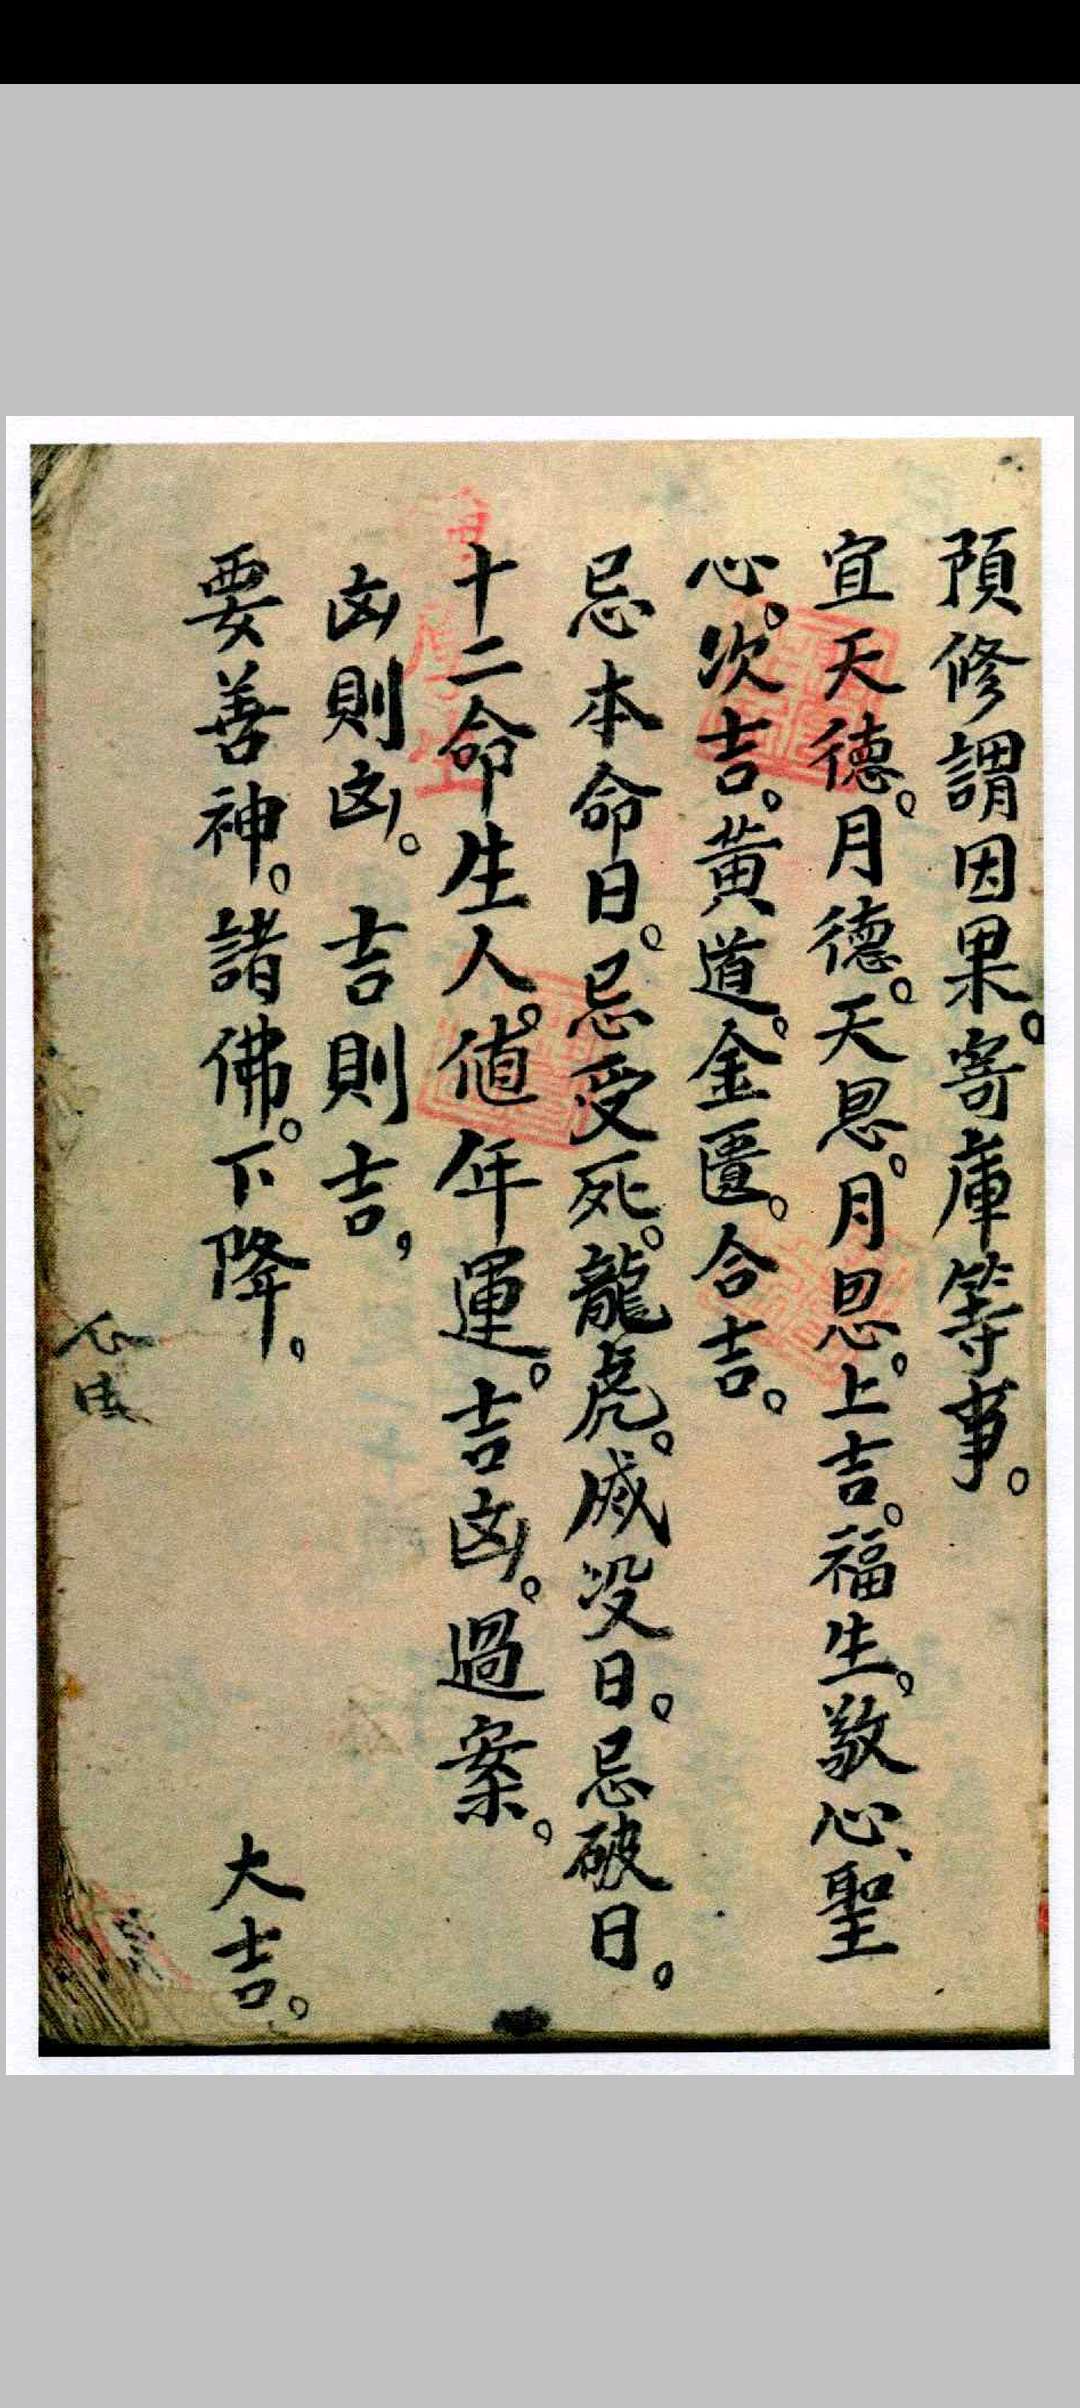 預修謂因果。寄庫等事。
宜天德。月德。天恩。月恩。上吉。福生。敬心、聖
心。次吉。黃道。金匱。合吉。
忌本命日。忌受死。龍虎。滅没日。忌破日。
十二命生人。值年運。吉凶。過案。
凶則凶。吉則吉,
要善神。諸佛。下降。 大吉。